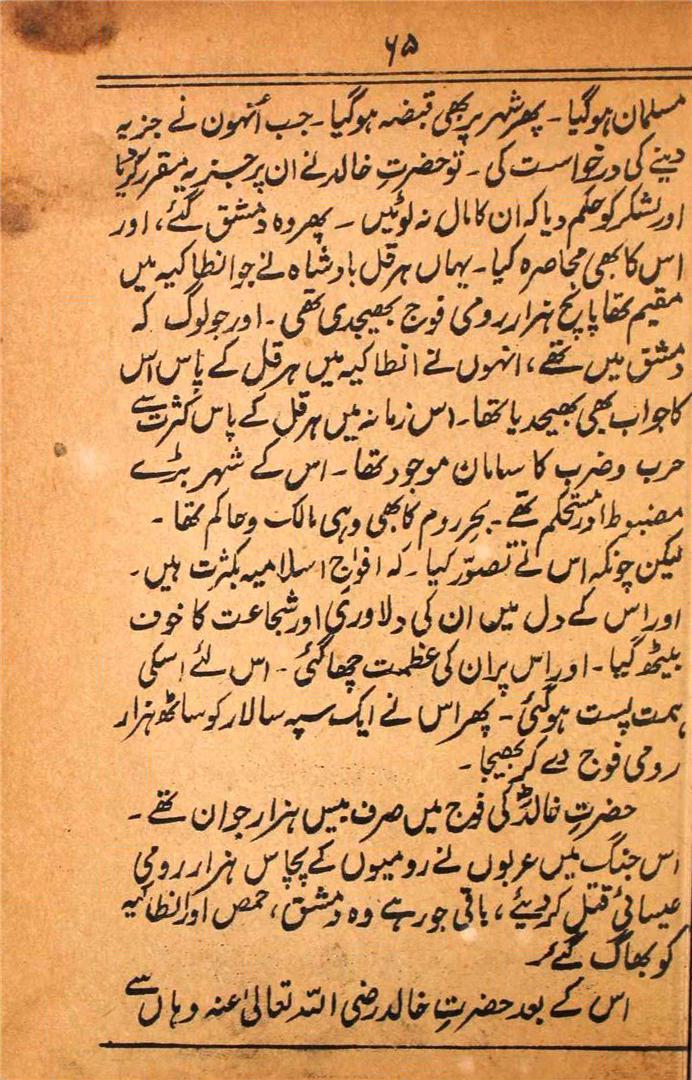 ۶۵
مسلمان ہوگیا۔ پھر شہر پر بھی قبضہ ہوگیا۔ جب اُنہون نے جزیہ
دینے کی درخواست کی۔ تو حضرتِ خالد نے ان پر جزیہ مقرر کردیا
اور لشکر کو حکم دیا کہ ان کا مال نہ لوٹیں۔ پھر وہ دمشق گئے، اور
اس کا بھی محاصرہ کیا۔ یہاں ہرقل بادشاہ نے جو انطاکیہ میں
مقیم تھا پانچ ہزار رومی فوج بھیجدی تھی۔ اور جو لوگ کہ
دمشق میں تھے، انہوں نے انطاکیہ میں ہرقل کے پاس اس
کا جواب بھی بھیجدیا تھا۔ اس زمانہ میں ہرقل کے پاس کثرت سے
حرب و ضرب کا سامان موجود تھا۔ اس کے شہر بڑے
مضبوط اور مستحکم تھے۔ بحرِ روم کا بھی وہی مالک و حاکم تھا۔
لیکن چونکہ اس نے تصوّر کیا۔ کہ افواجِ اسلامیہ بکثرت ہیں۔
اور اس کے دل میں ان کی دلاوری اور شجاعت کا خوف
بیٹھ گیا۔ اور اس پر ان کی عظمت چھا گئی۔ اس لئے اسکی
ہمت پست ہوگئی۔ پھر اس نے ایک سپہ سالار کو ساٹھ ہزار
رومی فوج دے کر بھیجا۔
حضرتِ خالدؓ کی فوج میں صرف بیس ہزار جوان تھے۔
اس جنگ میں عربوں نے رومیوں کے پچاس ہزار رومی
عیسائی قتل کر دیئے، باقی جو رہے وہ دمشق، حمص اور انطاکیہ
کو بھاگ گئے۔
اس کے بعد حضرتِ خالد رضی اللہ تعالیٰ عنہ وہاں سے